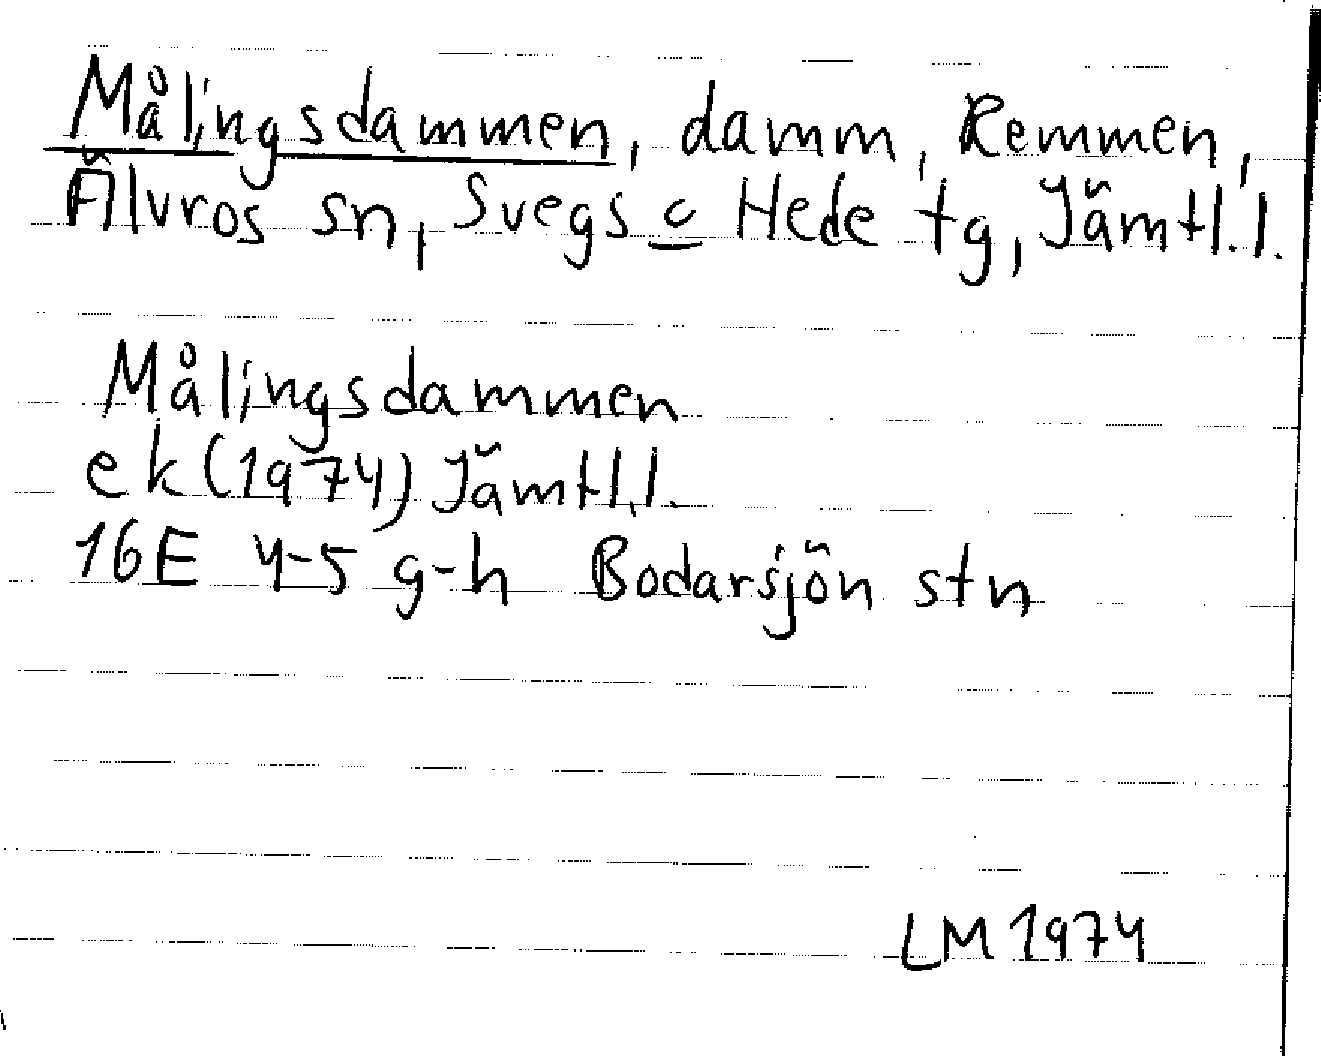 Målingsdammen, damm, Remmen,
Älvros sn, Svegs o Hede tg, Jämtl. l.
Målingsdammen
ek (1974) Jämtl. l.
16E 4-5 g-h Bodarsjön stn
LM 1974